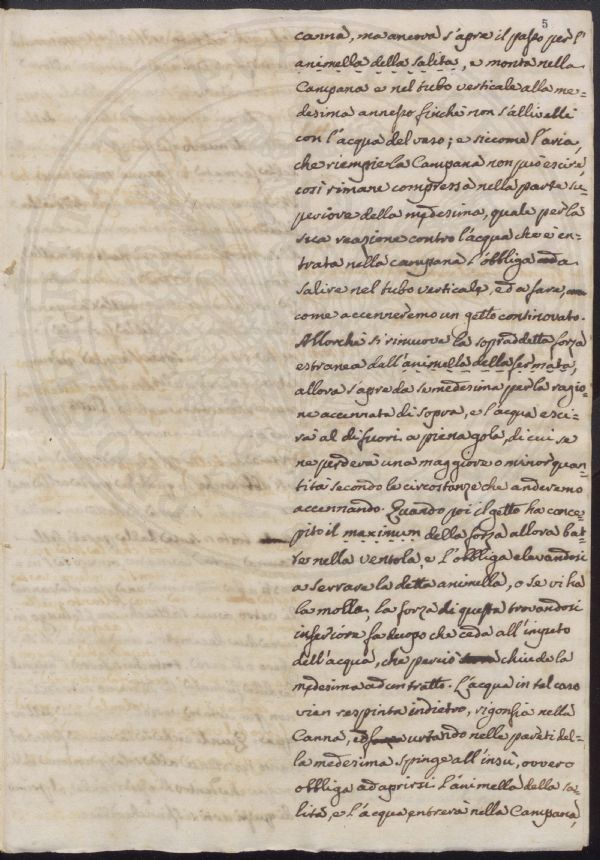 5
canna, ma ancora s'apre il passo per l'
animella della salita, e monta nella
Campana e nel tubo verticale alla me-
desima annesso finchè non s'allivelli
con l'acqua del vaso; e siccome l'aria,
che riempie la Campana non può escire,
così rimane compressa nella parte su-
periore della medesima, quale per la
sua reazione contro l'acqua che è en-
trata nella campana l'obbliga a
salire nel tubo verticale, ed a fare,
come accenneremo un getto continovato.
Allorchè si rimuove la sopraddetta forza
estranea dall'animella della fermata,
allora s'apre da se medesima per la ragio-
ne accennata di sopra, e l'acqua esci-
rà al di fuori a piena gola, di cui se
ne perderà una maggiore o minor quan-
tità secondo le circostanze che anderemo
accennando. Quando poi il getto ha conce-
pito il maximum della forza allora bat-
te nella ventola, e l'obbliga elevandosi
a serrare la detta animella, o se vi ha
la molla, la forza di questa trovandosi
inferiore fa luogo che ceda all'impeto
dell'acqua, che perciò chiude la
medesima ad un tratto. L'acqua in tal caso
vien respinta indietro, rigonfia nella
Canna, ed urtando nelle pareti del-
la medesima spinge all'insù, ovvero
obbliga ad aprirsi l'animella della sa-
lita, e l'acqua entrerà nella Campana,